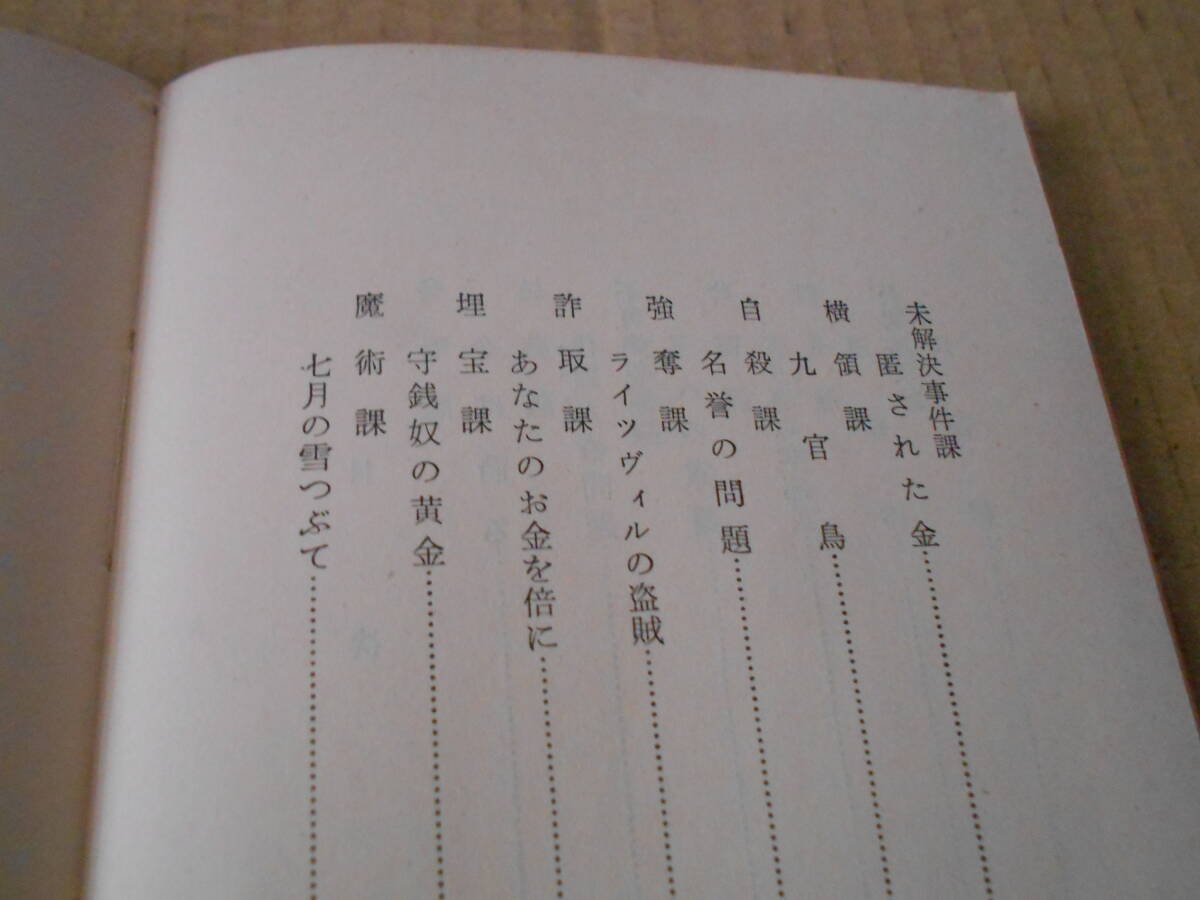 未解決事件課
匿された金
横領課
九官鳥
自殺課
名誉の問題
強奪課
ライツヴィルの盗賊
詐取課
あなたのお金を倍に
埋宝課
守銭奴の黄金
魔術課
七月の雪つぶて